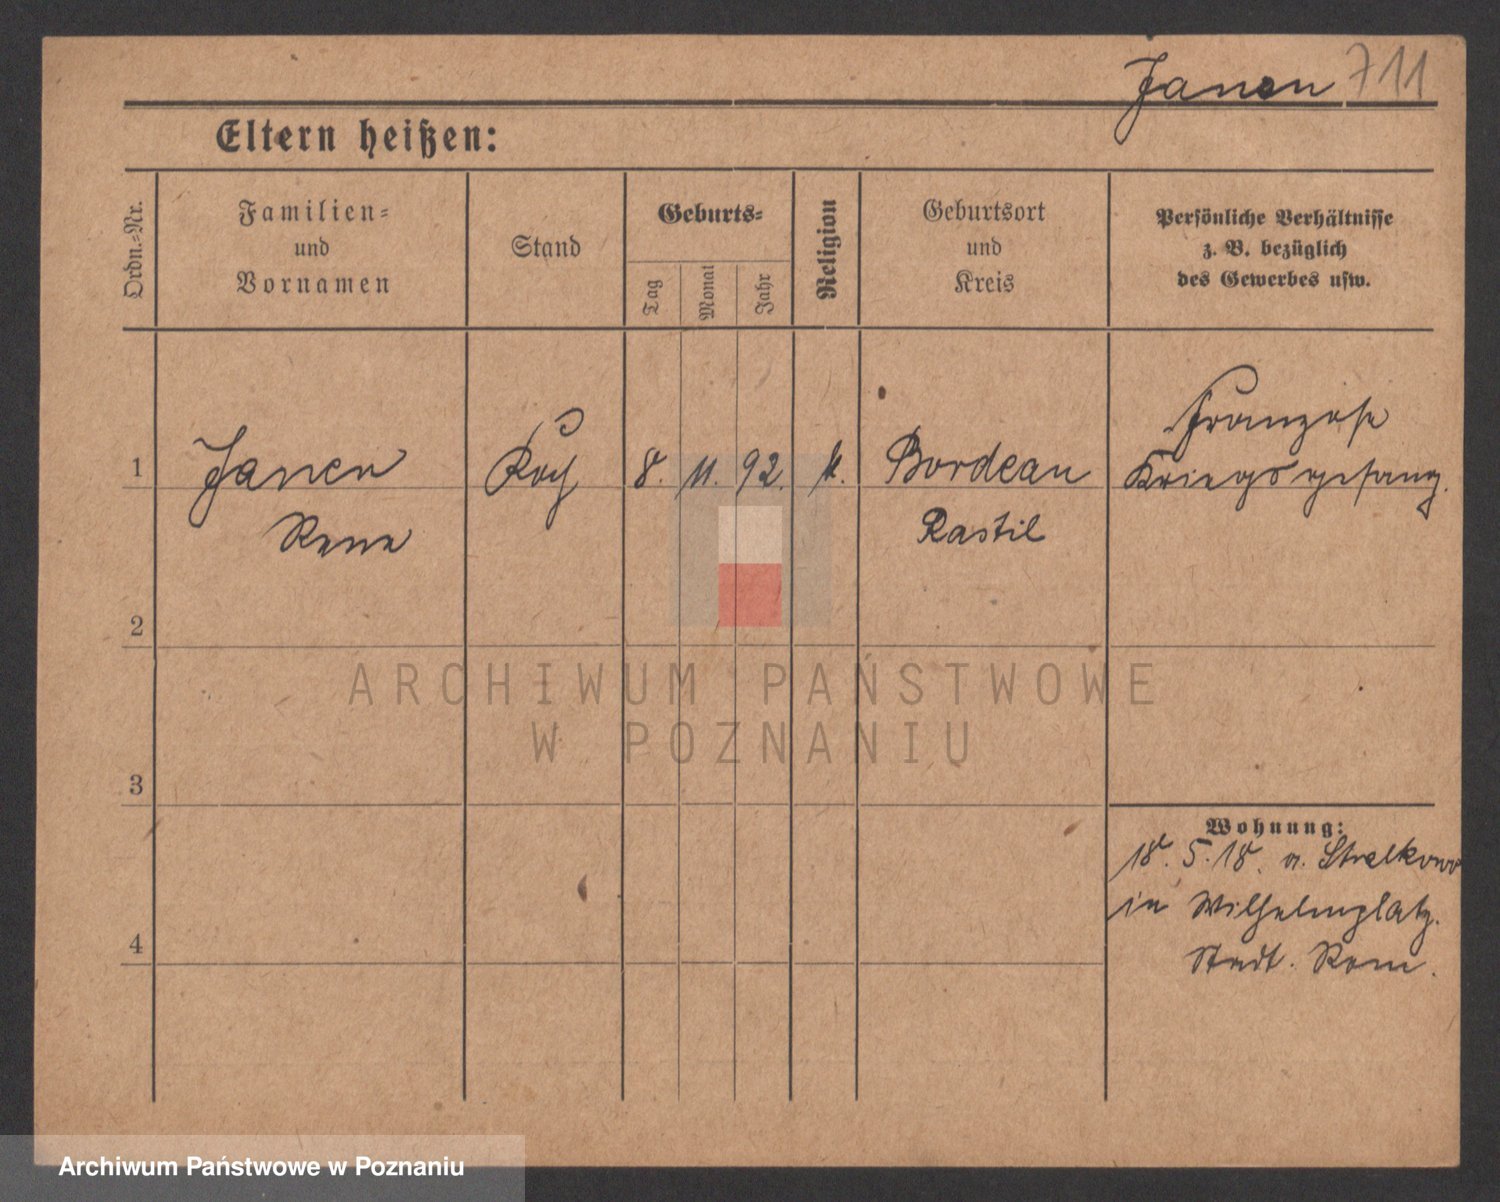 Janen 711
Eltern heißen:
Ordn.=Nr.
Familien=
und
Vornamen
Stand
Geburts=
Tag
Monat
Jahr
Religion
Geburtsort
und
Kreis
Persönliche Verhältnisse
z. B. bezüglich
des Gewerbes usw.
1
Janen
Rene
Koch
8. 11. 92. k.
Bordeau
Rastil
Franzose
Kriegsgefang.
2
ARCHIWUM PAŃSTWOWE
W POZNANIU
3
Wohnung:
18. 5. 18. a. Stralkowo
in Wilhelmplatz.
Stadt.
4
Archiwum Państwowe w Poznaniu